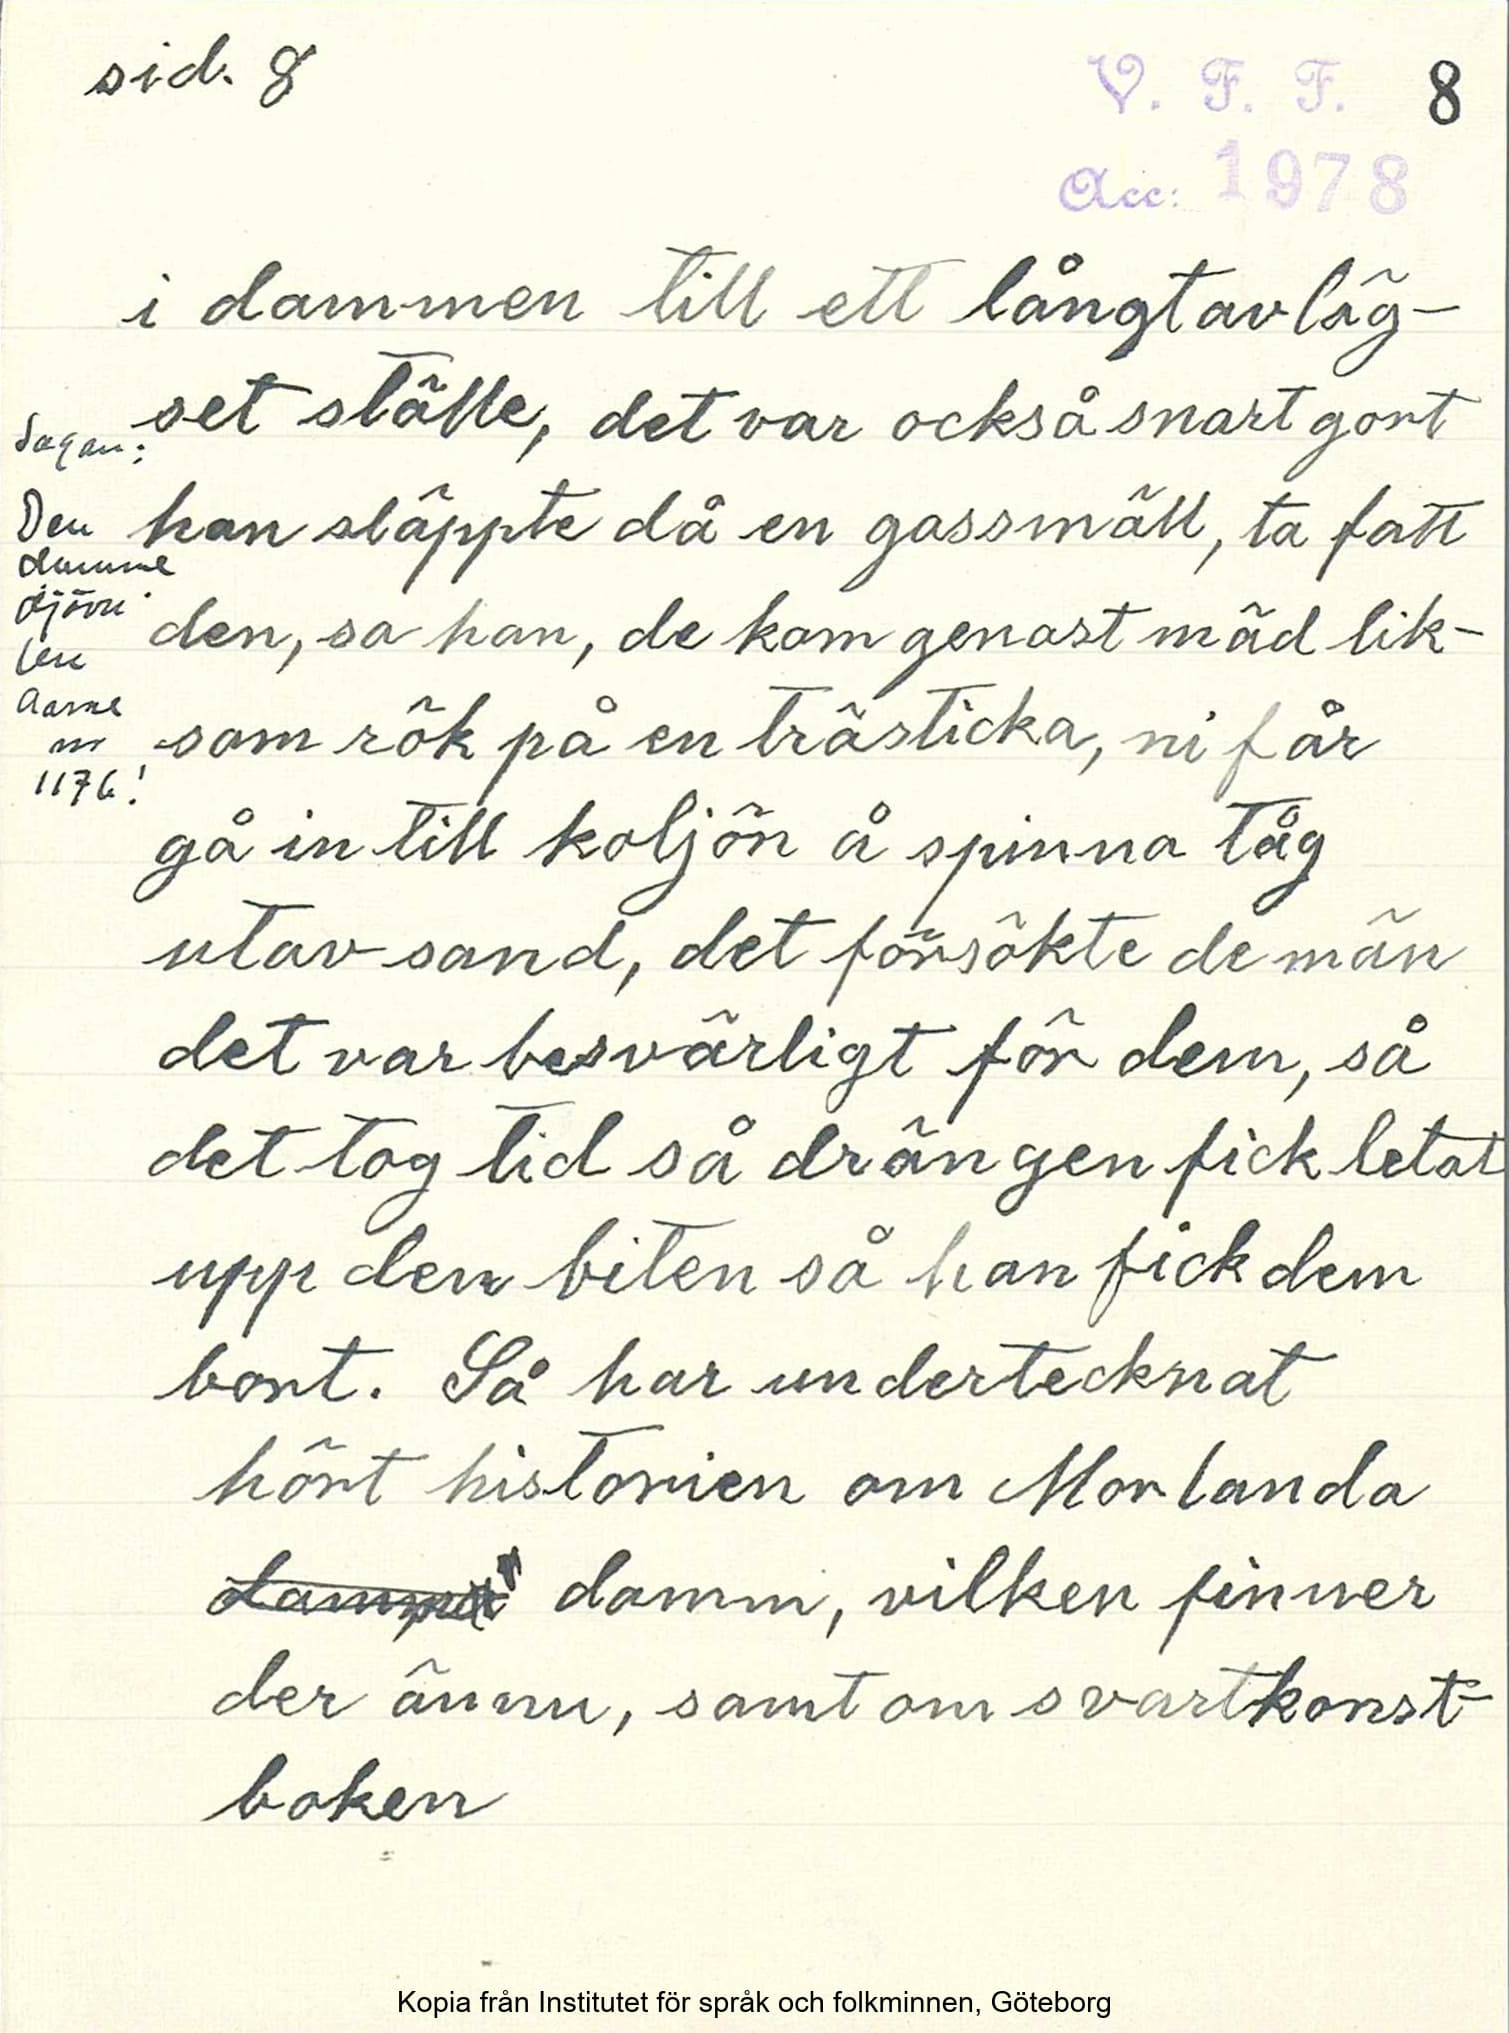 sid. 8
V. F. F. 8
Acc: 1978
i dammen till ett långtavläg-
set ställe, det var också snart gort
han släppte då en gassmäll, ta fatt
den, sa han, de kom genast mäd lik-
som rök på en trästicka, ni får
gå in till koljön å spinna tåg
utav sand, det försökte de män
det var besvärligt för dem, så
det tog tid så drängen fick letat
upp den biten så han fick dem
bort. Så har undertecknat
hört historien om Morlanda
damm, vilken finner
der ännu, samt om svartkonst-
boken
Sagan:
Den
dumme
djävu-
len
Aarne
nr
1176!
Kopia från Institutet för språk och folkminnen, Göteborg